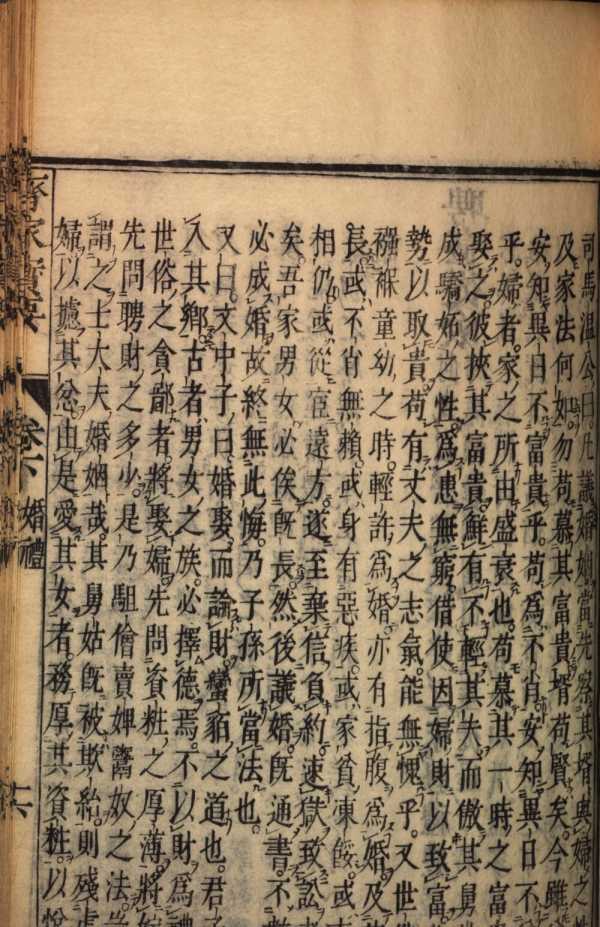 司馬温公曰凡議婚姻當先察其婿與婦之性
及家法何如勿苟慕其富貴婿苟賢矣今雖
安知異日不富貴乎苟爲不肖安知異日不
乎婦者家之所由盛衰也苟慕其一時之富
娶之彼挾其富貴鮮有不輕其夫而傲其舅
成驕妬之性爲患無窮借使因婦財以致富
勢以取貴苟有丈夫之志氣能無愧乎又世
襁褓童幼之時輕許爲婚亦有指腹爲婚及
長或不肖無賴或身有惡疾或家貧凍餒或
相仍或從宦遠方遂至棄信負約速獄致訟
矣吾家男女必俟既長然後議婚既通書不
必成婚故終無此悔乃子孫所當法也
又曰文中子曰婚娶而論財蠻貊之道也君
入其鄉古者男女之族必擇德焉不以財爲
世俗之貪鄙者將娶婦先問資粧之厚薄將
先問聘財之多少是乃駔儈賣婢鬻奴之法
謂之士大夫婚姻哉其舅姑既被欺紿則殘
婦以攄其忿由是愛其女者務厚其資粧以
齊家寶要
卷下
婚禮